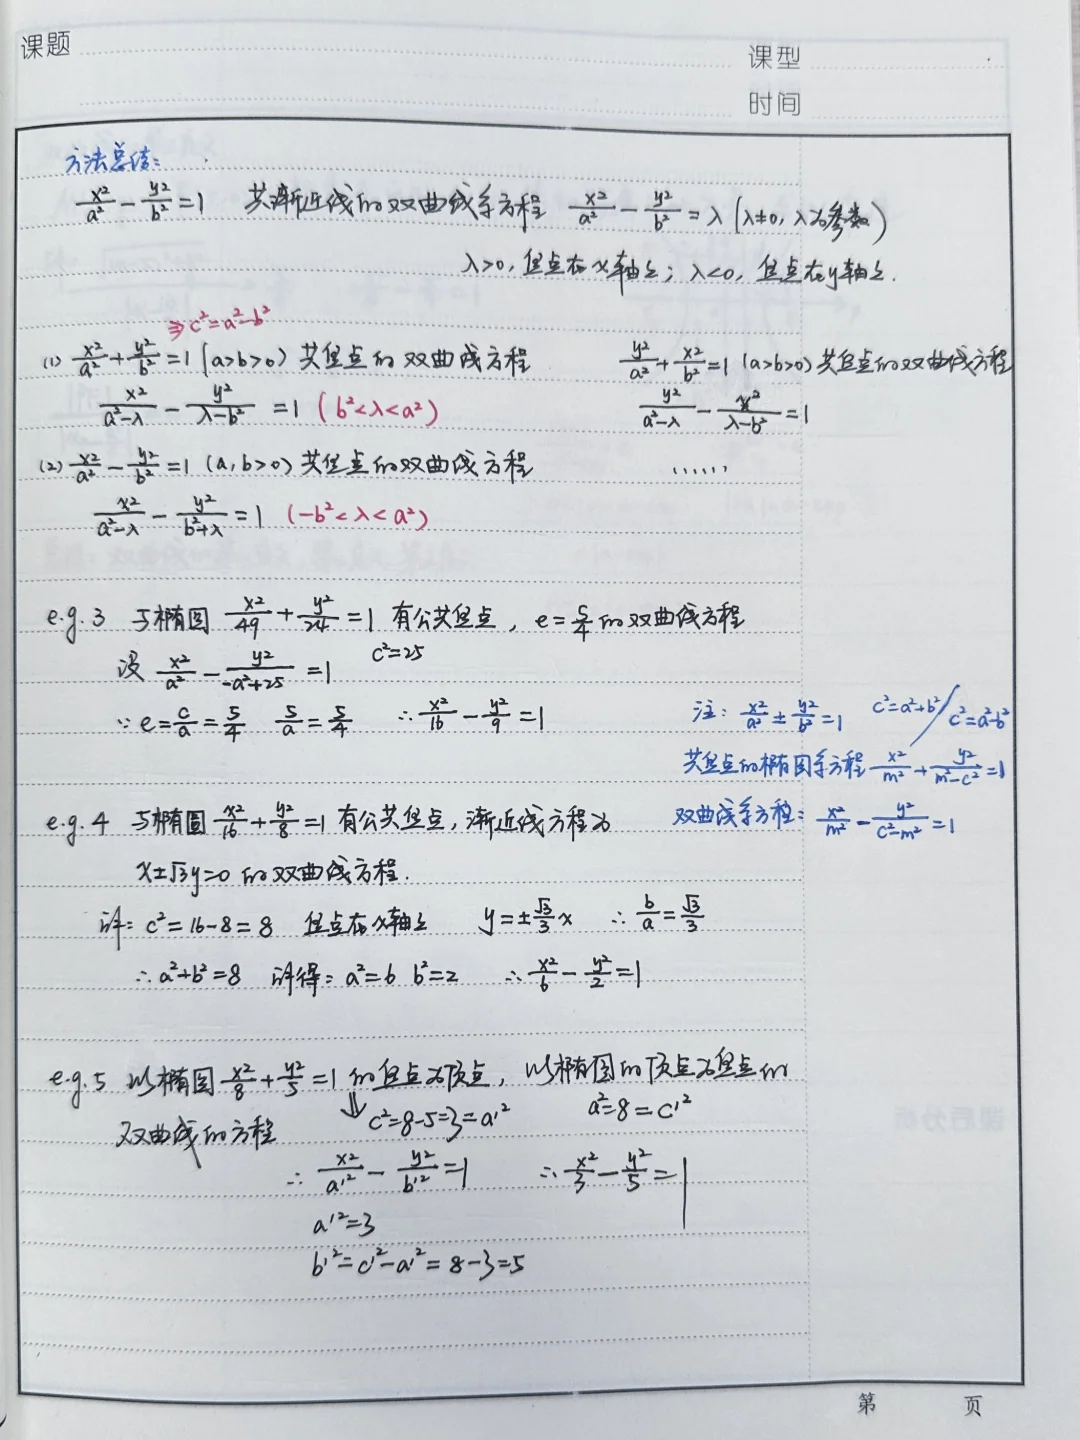 课题
课型
时间
方法总结:
x²/a² - y²/b² = 1 共渐近线的双曲线系方程 x²/a² - y²/b² = λ (λ≠0, λ为参数)
λ>0, 焦点在x轴上; λ<0, 焦点在y轴上.
⇒ c² = a² - b²
(1) x²/a² + y²/b² = 1 (a>b>0) 共焦点的双曲线方程
x²/(a²-λ) - y²/(λ-b²) = 1 (b²<λ<a²)
y²/a² + x²/b² = 1 (a>b>0) 共焦点的双曲线方程
y²/(a²-λ) - x²/(λ-b²) = 1
(2) x²/a² - y²/b² = 1 (a,b>0) 共焦点的双曲线方程
......
x²/(a²-λ) - y²/(b²+λ) = 1 (-b²<λ<a²)
e.g.3 与椭圆 x²/49 + y²/24 = 1 有公共焦点, e = 5/4 的双曲线方程
c²=25
设 x²/a² - y²/(-a²+25) = 1
∵ e = c/a = 5/4 5/a = 5/4 ∴ x²/16 - y²/9 = 1
注: x²/a² ± y²/b² = 1 c²=a²+b² / c²=a²-b²
共焦点的椭圆系方程 x²/m² + y²/(m²-c²) = 1
双曲线系方程: x²/m² - y²/(c²-m²) = 1
e.g.4 与椭圆 x²/16 + y²/8 = 1 有公共焦点, 渐近线方程为
x±√3y=0 的双曲线方程.
解: c² = 16-8 = 8 焦点在x轴上 y = ±√3/3 x ∴ b/a = √3/3
∴ a²+b² = 8 解得: a²=6 b²=2 ∴ x²/6 - y²/2 = 1
e.g.5 以椭圆 x²/8 + y²/5 = 1 的焦点为顶点, 以椭圆的顶点为焦点的
⇓ c²=8-5=3=a'² a²=8=c'²
双曲线的方程
∴ x²/a'² - y²/b'² = 1 ∴ x²/3 - y²/5 = 1
a'²=3
b'²=c'²-a'² = 8-3=5
第 页